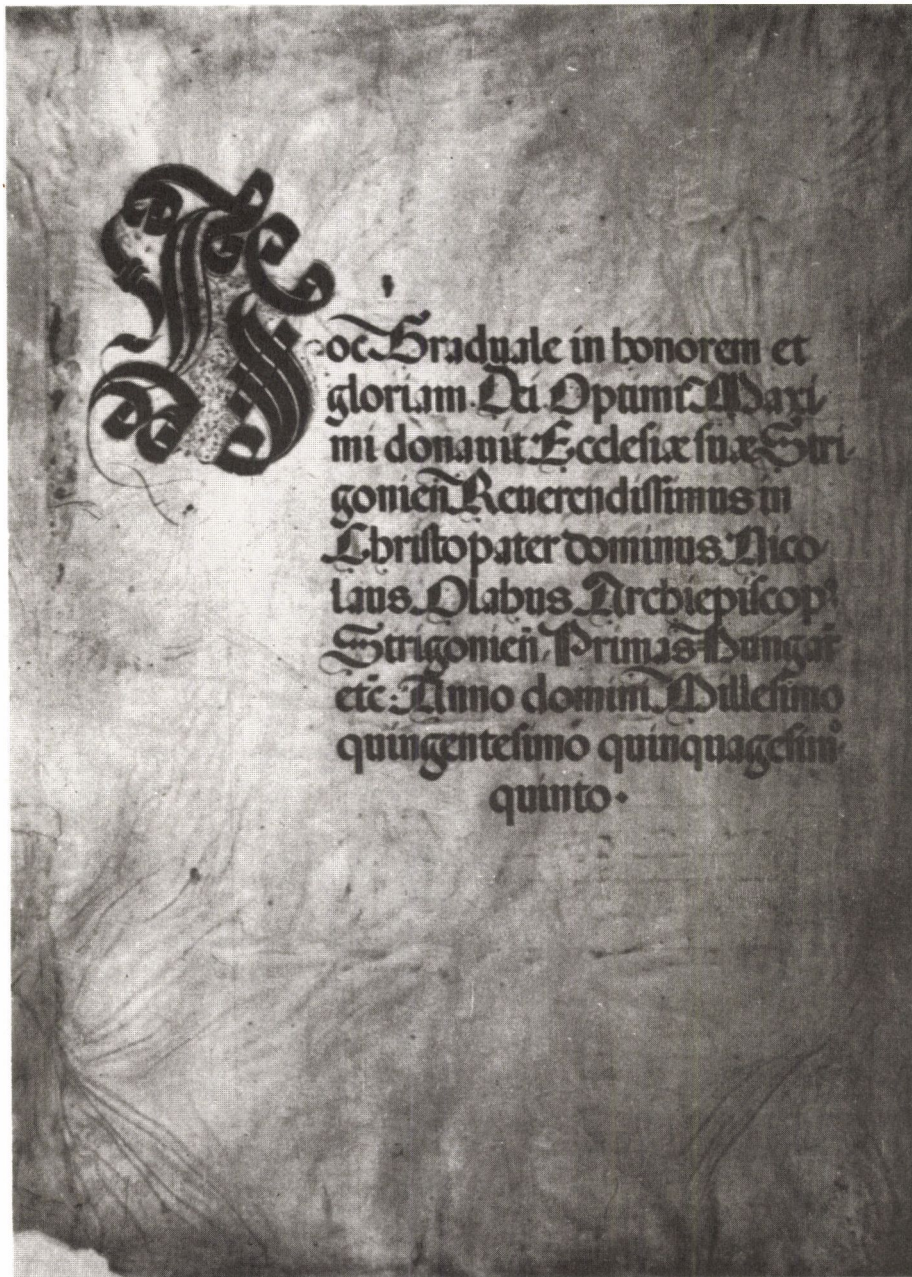 Hoc Graduale in honorem et
gloriam Dei Optimi Maxi
mi donauit Ecclesiæ suæ Stri
gonien̄ Reuerendissimus in
Christo pater dominus Nico
laus Olahus Archiepiscopꝰ
Strigonien̄ Primas Hungar̄
etc̄: Anno domini Millesimo
quingentesimo quinquagesimº
quinto.